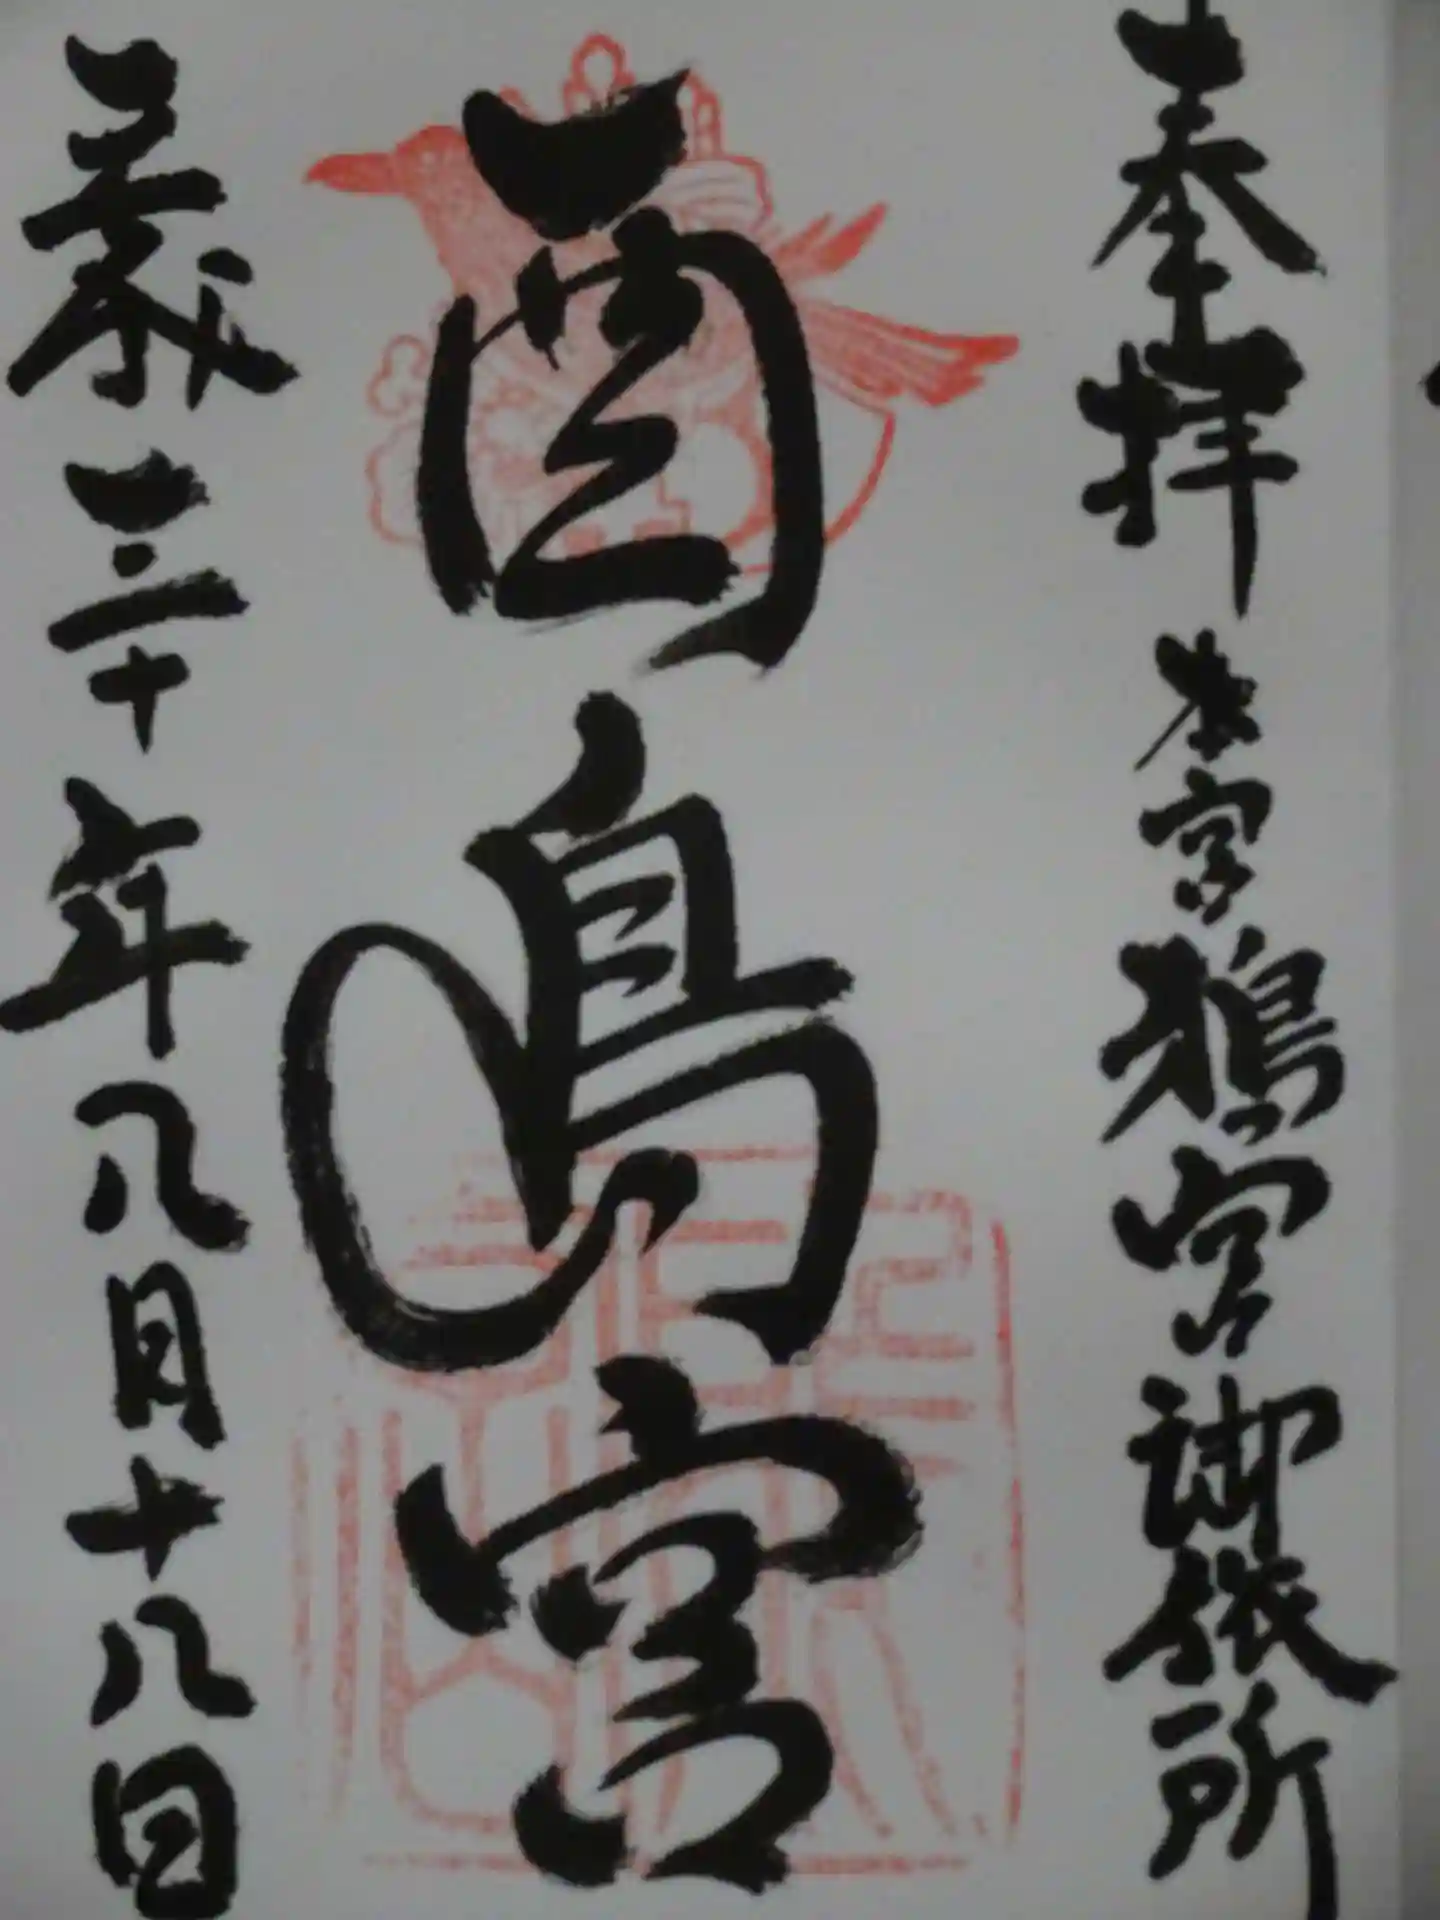 奉拝 本宮鴉宮御旅所
酉島宮
平成三十年八月十八日